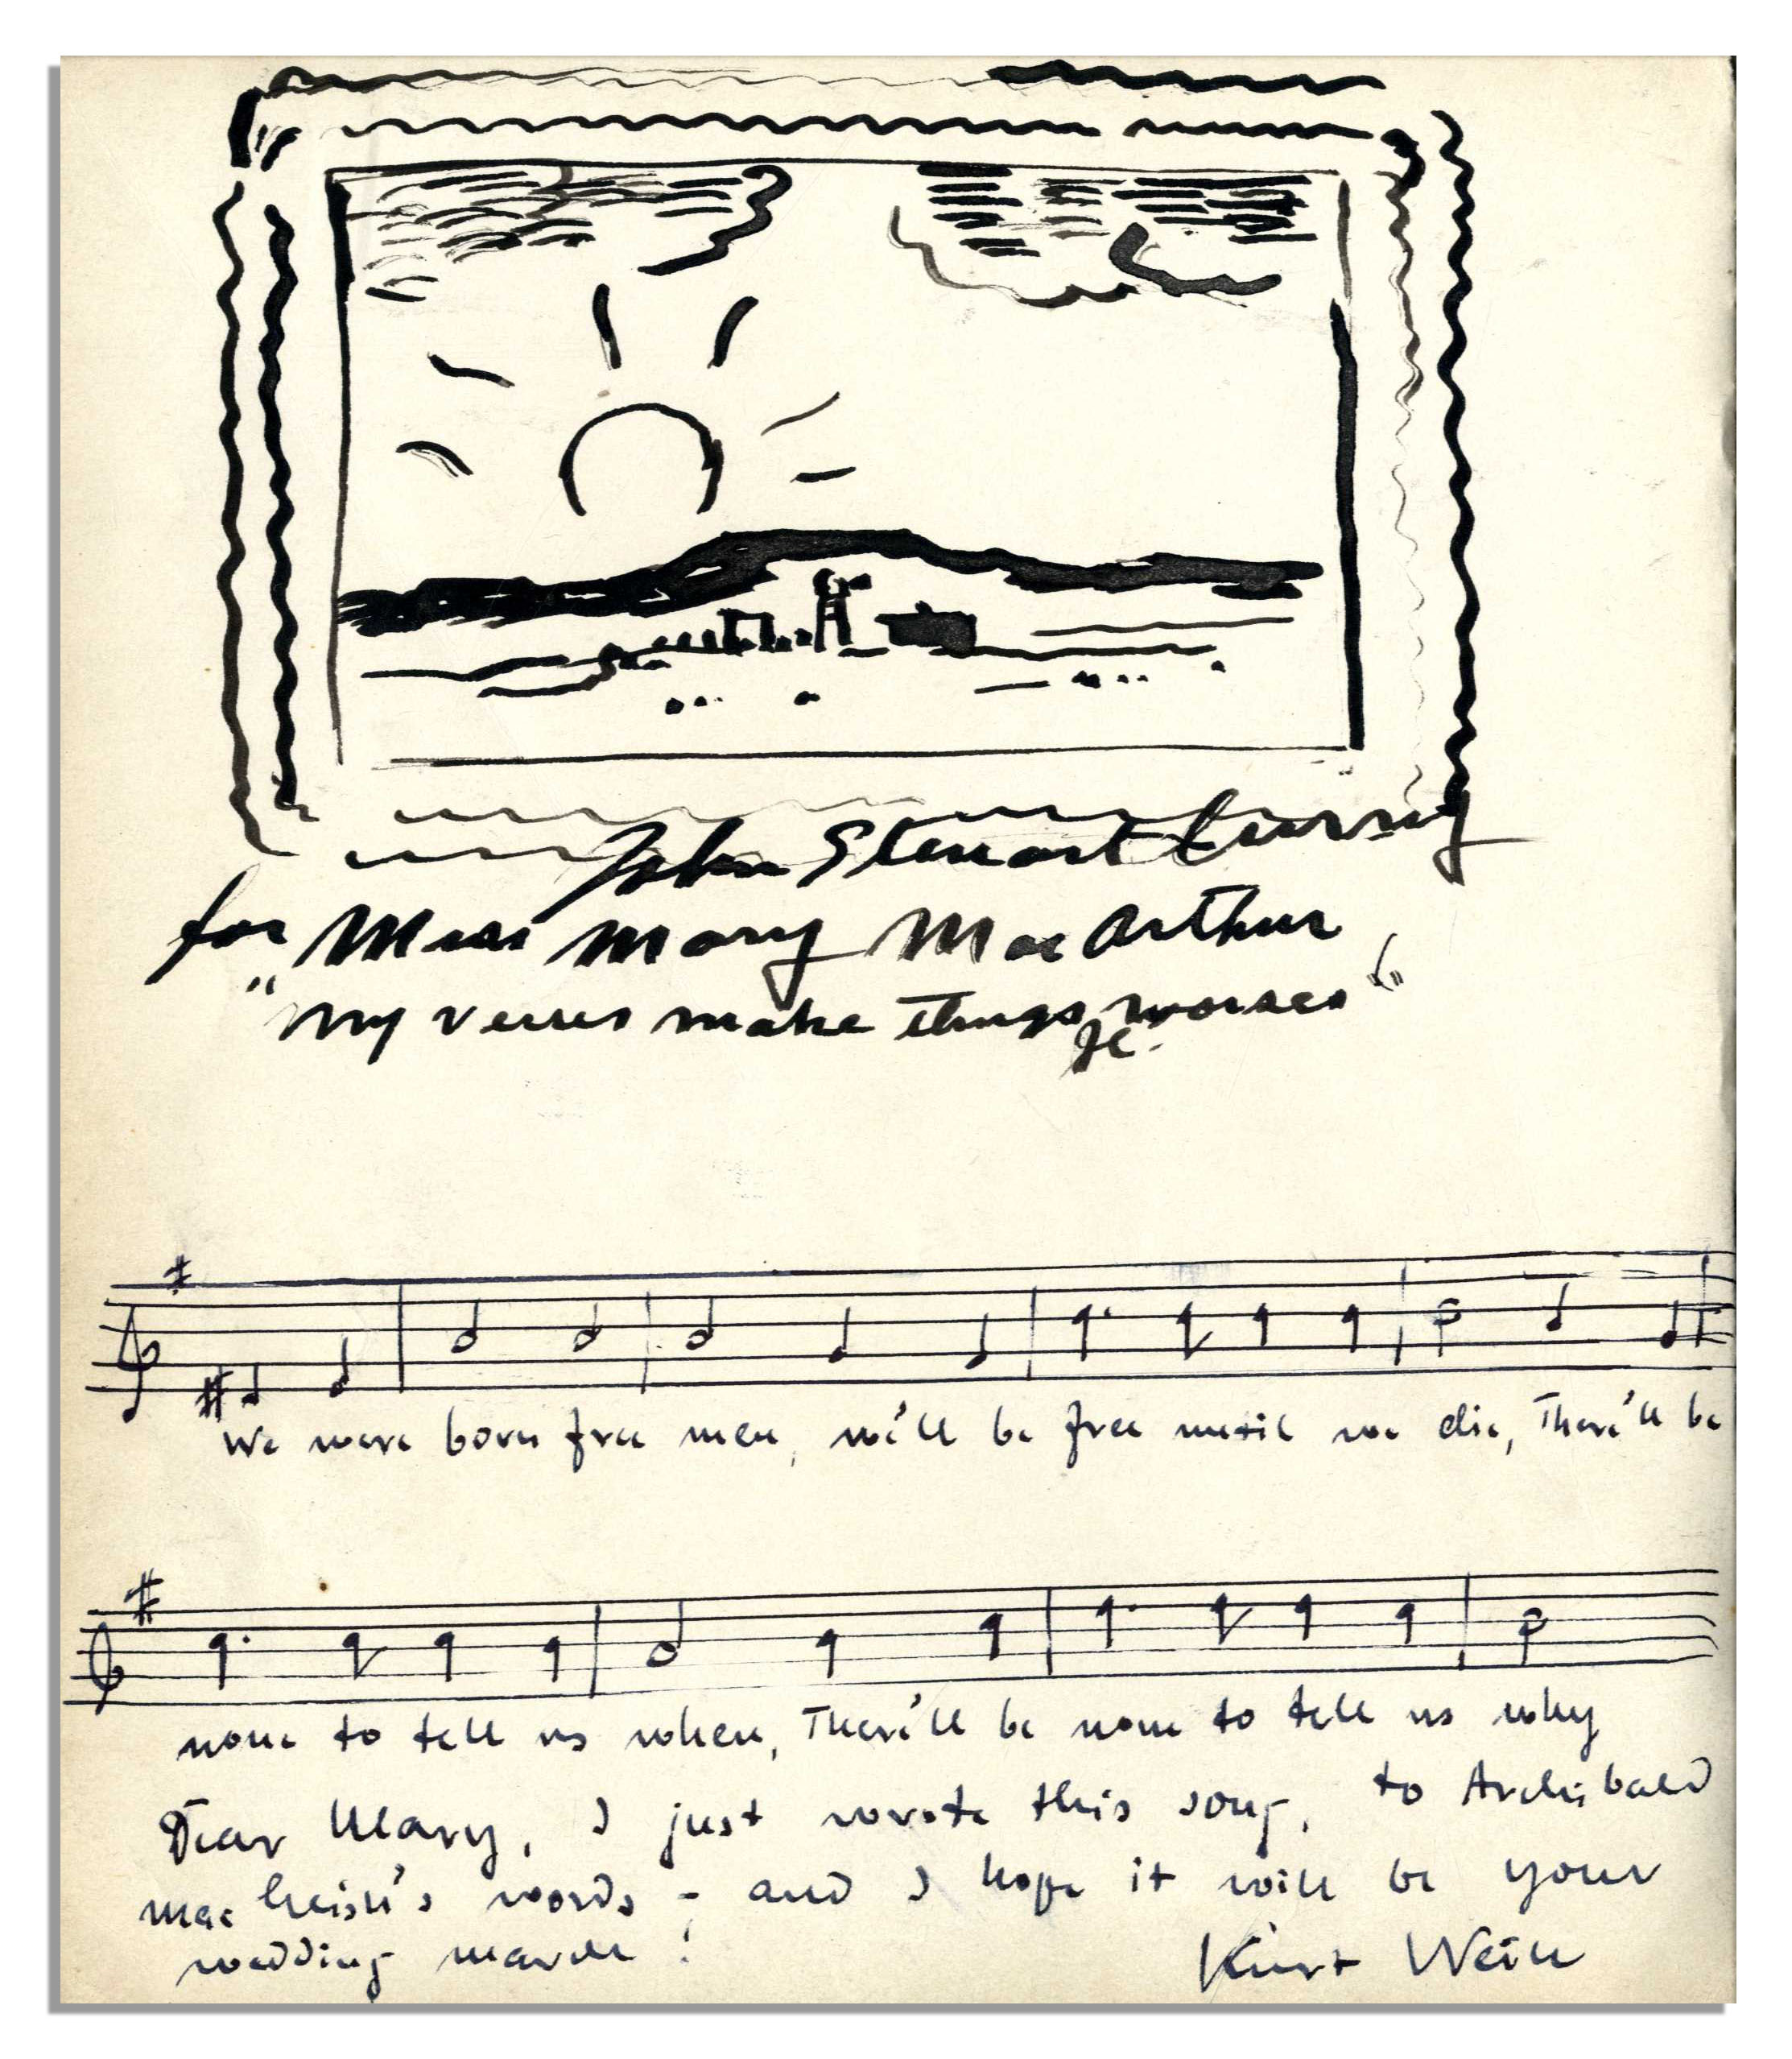 John Steuart Curry
for Miss Mary MacArthur
"My verses make things worses"
JC.
We were born free men, we'll be free until we die, There'll be
none to tell us when, There'll be none to tell us why
Dear Mary, I just wrote this song, to Archibald
MacLeish's words - and I hope it will be your
wedding march!
Kurt Weill